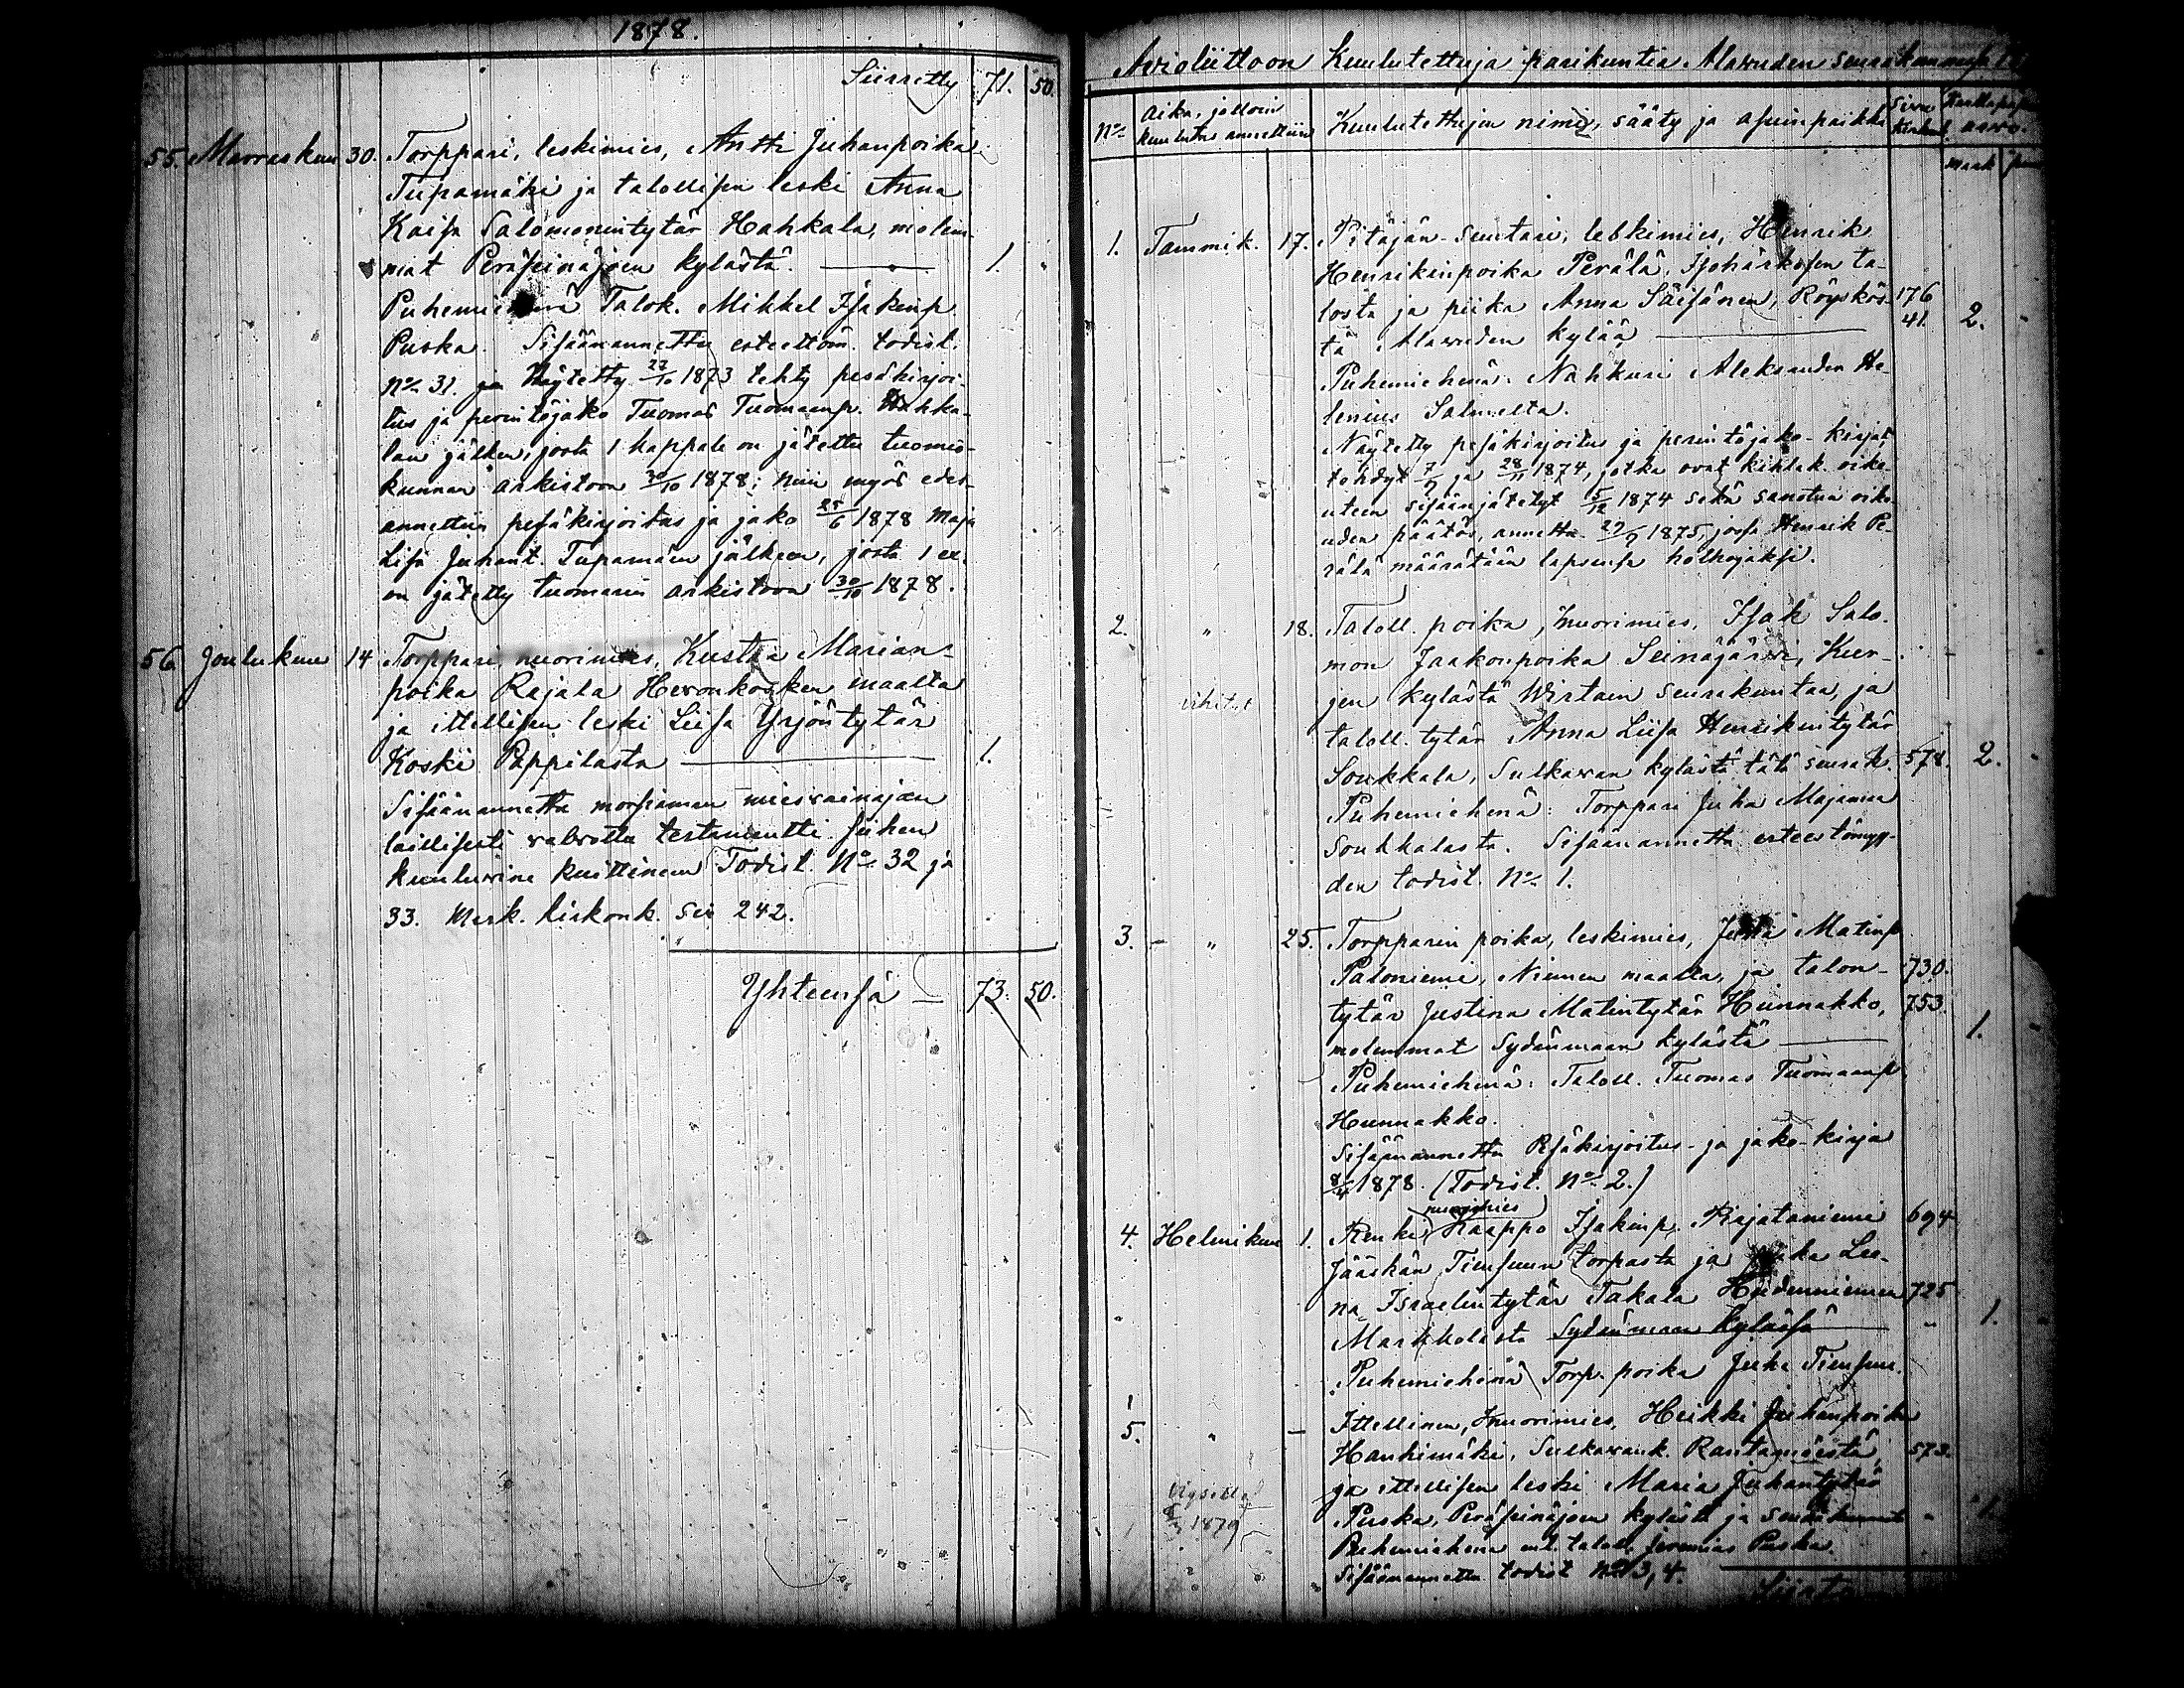 1878.
Siirretty 71. 50.
55. Marraskuu 30. Torppari, leskimies, Antti Juhanpoika
Tupamäki ja talollisen leski Anna
Kaisa Salomonintytär Hahkala, molem-
mat Peräseinäjoen kylästä. 1.
Talok. Mikkel Isakinp.
Puska. Sisäänannettu esteettöm. todist.
No 31. ja Näytetty 23/10 1873 tehty pesäkirjoi-
tus ja perintöjako Tuomas Tuomaanp. Hahka-
lan jälkeen, josta 1 kappale on jätettu tuomio-
kunnan arkistoon 30/10 1878; niin myös edes-
annettiin pesäkirjoitus ja jako 25/6 1878 Maja
Lisa Juhant. Tupamäen jälkeen, josta 1 ex.
on jätetty tuomarin arkistoon 30/10 1878.
56. Joulukuu 14 Torppari, nuorimies, Kustaa Marian-
poika Rajala Hevonkosken maalta
ja ittellisen leski Liisa Yrjöntytär
Koski Pappilasta 1.
Sisäänannettu morsiamen miesvainajan
laillisesti valvottu testamentti siihen
kuuluvine kuittineen Todist. No 32 ja
33. Merk. kirkonk. siv 242.
Yhteensä 73. 50.
Avioliittoon Kuulutettuja parikuntia Alavuden seurakunnassa
No Aika, jolloin kuulutus annettiin Kuulutettujen nimi, sääty ja asuinpaikka Sivu Kirkonk. arvo.
Mark
1. Tammik. 17. Pitäjän-Suutari, leskimies, Henrik
Henrikinpoika Perälä, Isohärkösen ta-
losta ja piika Anna Säisänen, Röyskös- 176
tä Alavuden kylää 41. 2.
Puhemiehenä: Nahkuri Aleksander He-
lenius Salmelta.
Näytetty pesäkirjoitus ja perintöjako-kirjat
tehdyt 7/7 ja 28/11 1874, jotka ovat kihlak. oike-
uteen sisäänjätetyt 5/12 1874 sekä sanotun oike-
uden päätös, annettu 29/9 1875, jossa Henrik Pe-
rälä määrätään lapsensa holhojaksi.
2. " 18. Taloll. poika, nuorimies, Isak Salo-
mon Jaakonpoika Seinäjärvi, Kur-
jen kylästä Wirtain seurakuntaa, ja
vihityt
taloll. tytär Anna Liisa Henrikintytär
Soukkala, Sulkavan kylästä tätä seurak. 578. 2.
Puhemiehenä: Torppari Juha Majamaa
Soukkalasta. Sisäänannettu esteettömyy-
den todist. No 1.
3. - " 25. Torpparin poika, leskimies, Matinp.
Paloniemi, Niemen maalta, ja talon- 730.
tytär Justina Matintytär Hunnakko, 753.
molemmat Sydänmaan kylästä 1.
Puhemiehenä: Taloll. Tuomas Tuomaanp.
Hunnakko.
Sisäänannettu Pesäkirjoitus- ja jako-kirja
8/4 1878. (Todist. No 2.)
nuorimies
4. Helmikuu 1. Renki Kaappo Isakinp. Rajataniemi 694
Jääskän Tiensuun torpasta ja piika Lee-
na Israelintytär Takala Hiidenniemen 725
Markkolasta Sydänmaan kylässä 1.
Puhemiehenä Torp. poika Juha Tiensuu.
5. " - Ittellinen, nuorimies, Heikki Juhanpoika
Hanhimäki, Sulkavank. Rantamäestä, 573.
ja ittellisen leski Maria Juhantytär
1879
Puska, Peräseinäjoen kylästä ja seurakunnasta 1.
Puhemiehenä ent. taloll. Jeremias Puska.
Sisäänannettu todist No 3, 4.